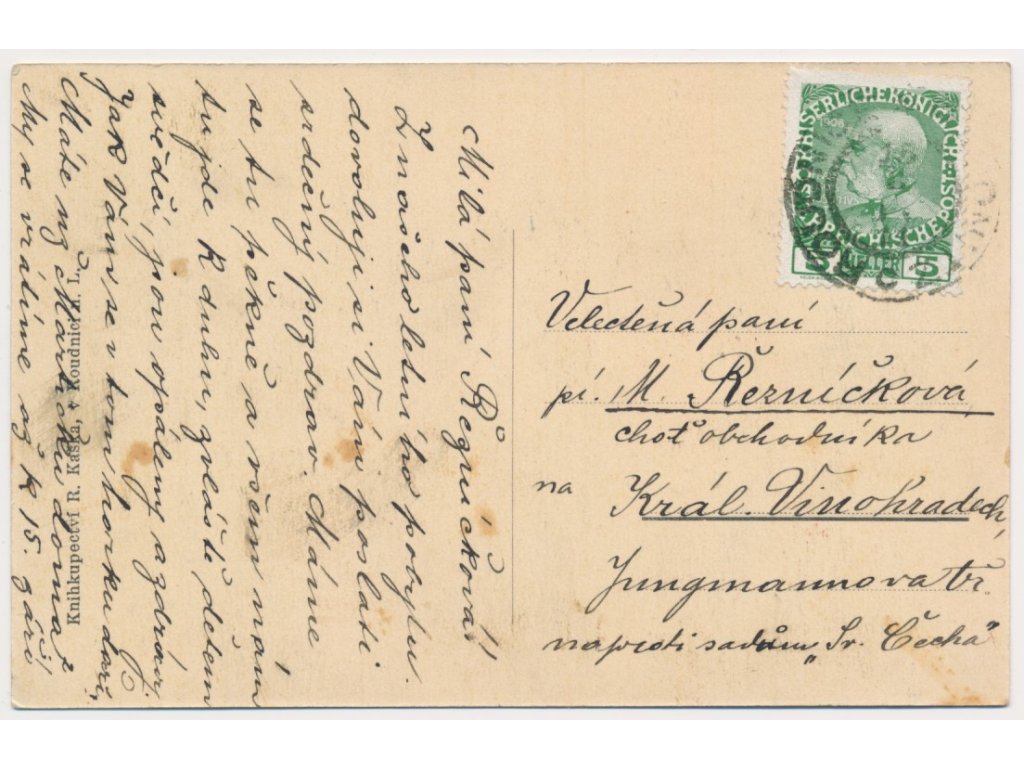 Milá paní Řezníčková!
Z našeho letního pobytu
dovoluji si Vám poslati
srdečný pozdrav. Máme
se tu pěkně a všem nám
tu jde k duhu, zvláště dětem
svědčí, jsou opáleny a zdrávy.
Jak Vám se v tom horku daří,
Máte už Mařenku doma?
My se vrátíme až k 15. září
Knihkupectví R. Kaška, v Roudnici n. L.
KAISERLICHE KÖNIGLICHE
ÖSTERREICHISCHE POST
5 HELLER 5
Velectěná paní
pí. M. Řezníčková,
choť obchodníka
na Král. Vinohradech,
Jungmannova tř.
naproti sadům „Sv. Čecha"